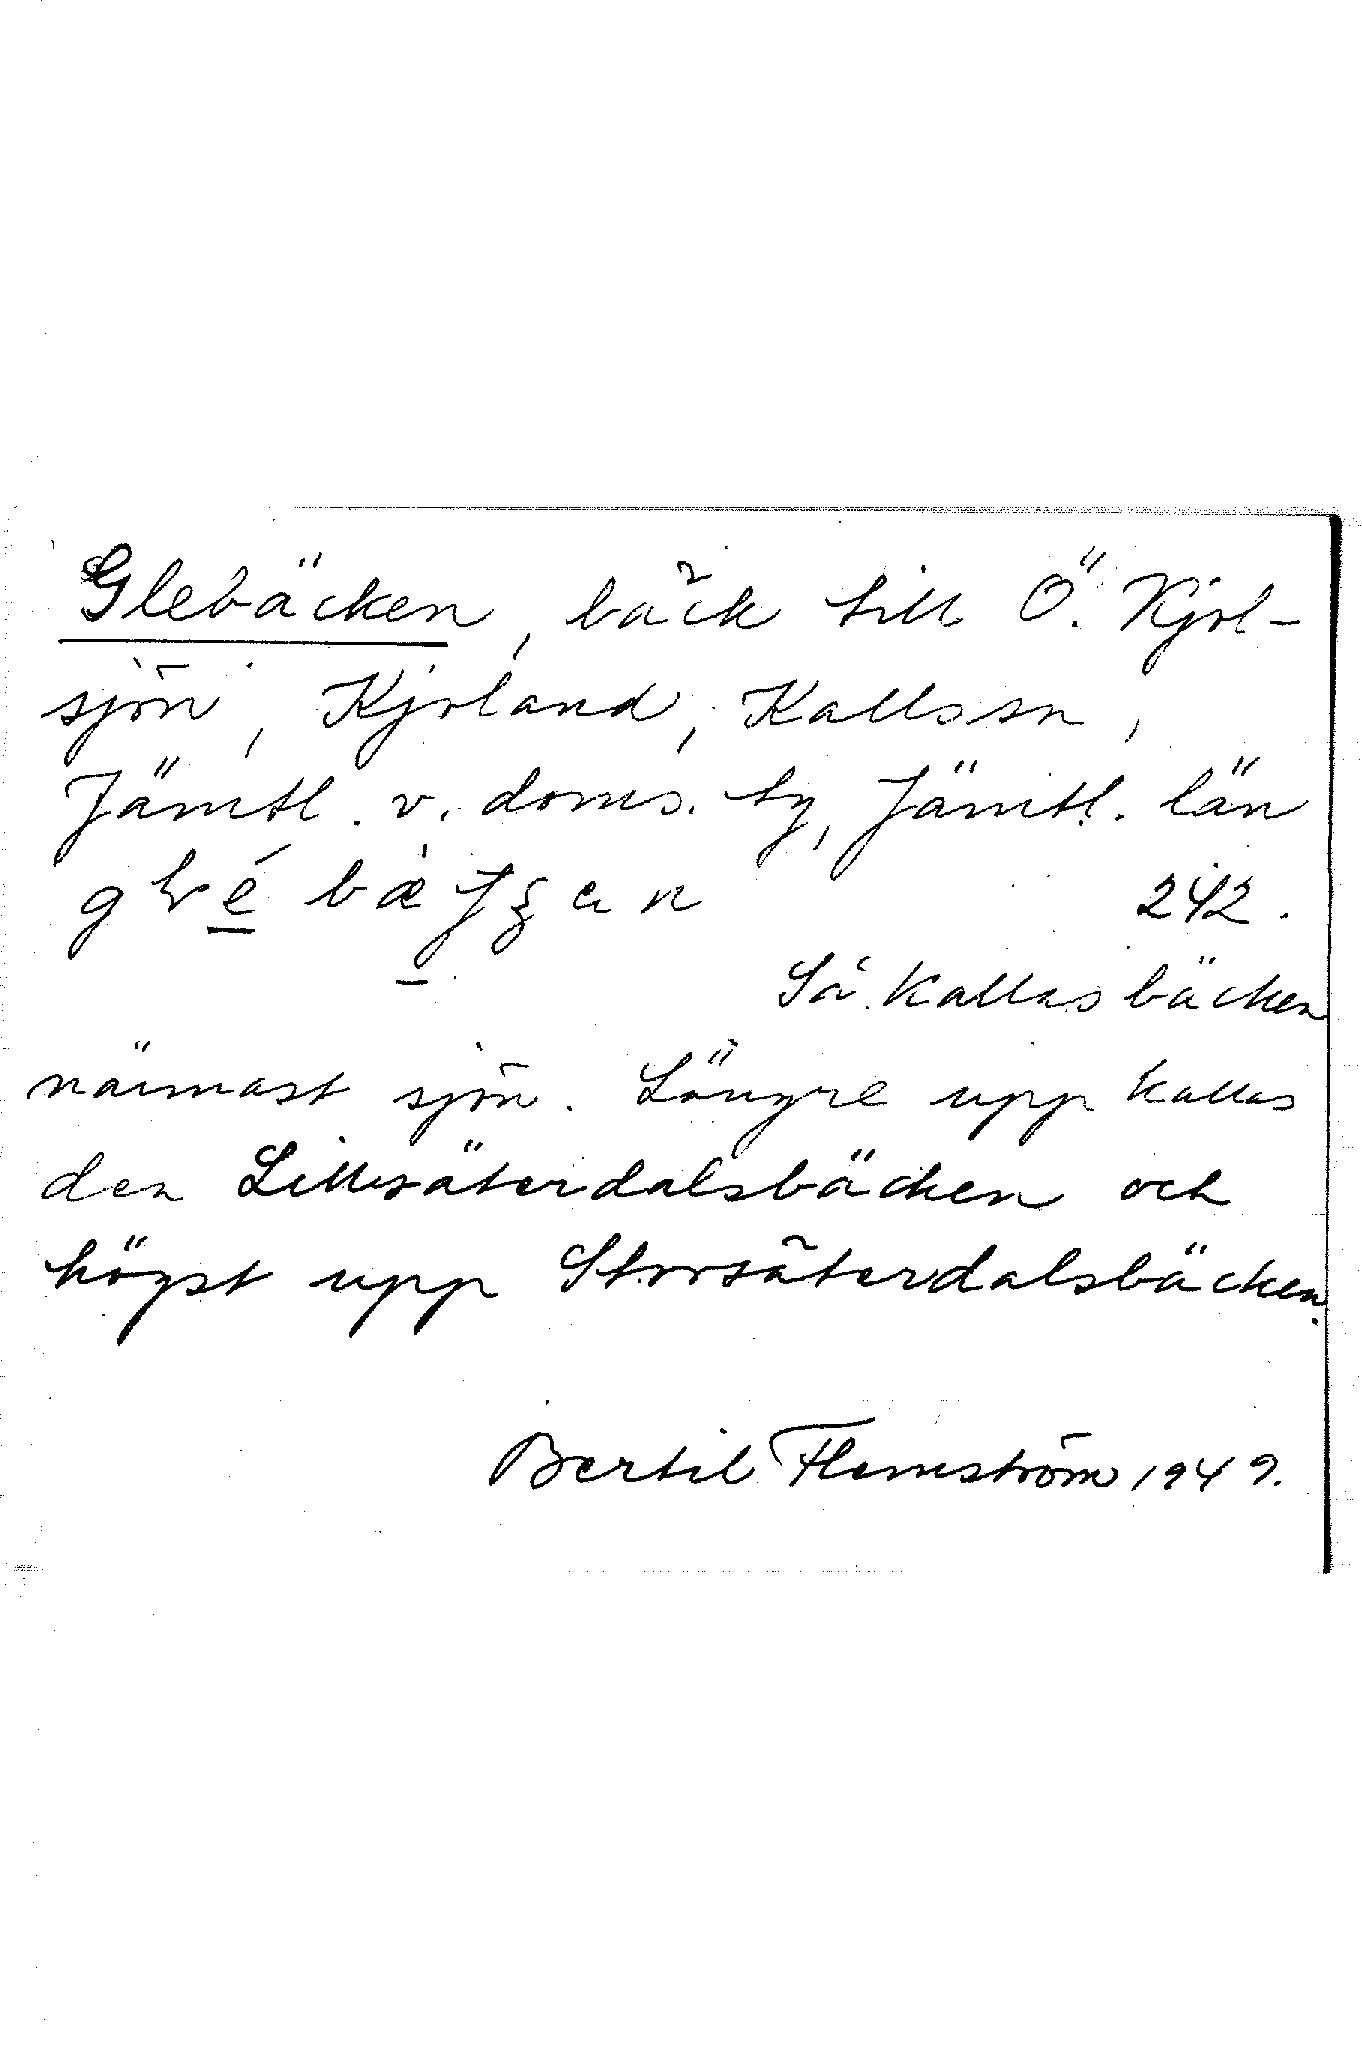 Glebäcken, bäck till Ö. Kjol-
sjön, Kjoland, Kalls sn,
Jämtl. v. doms. tg, Jämtl. län
242.
Så kallas bäcken
närmast sjön. Längre upp kallas
den Lillsäterdalsbäcken och
högst upp Storsäterdalsbäcken.
Bertil Flemström 1949.